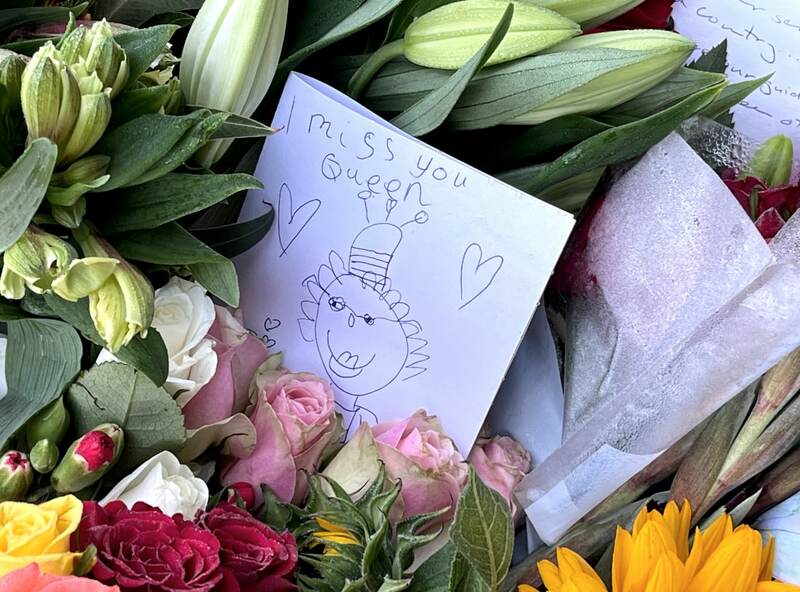 I miss you
Queen
country...